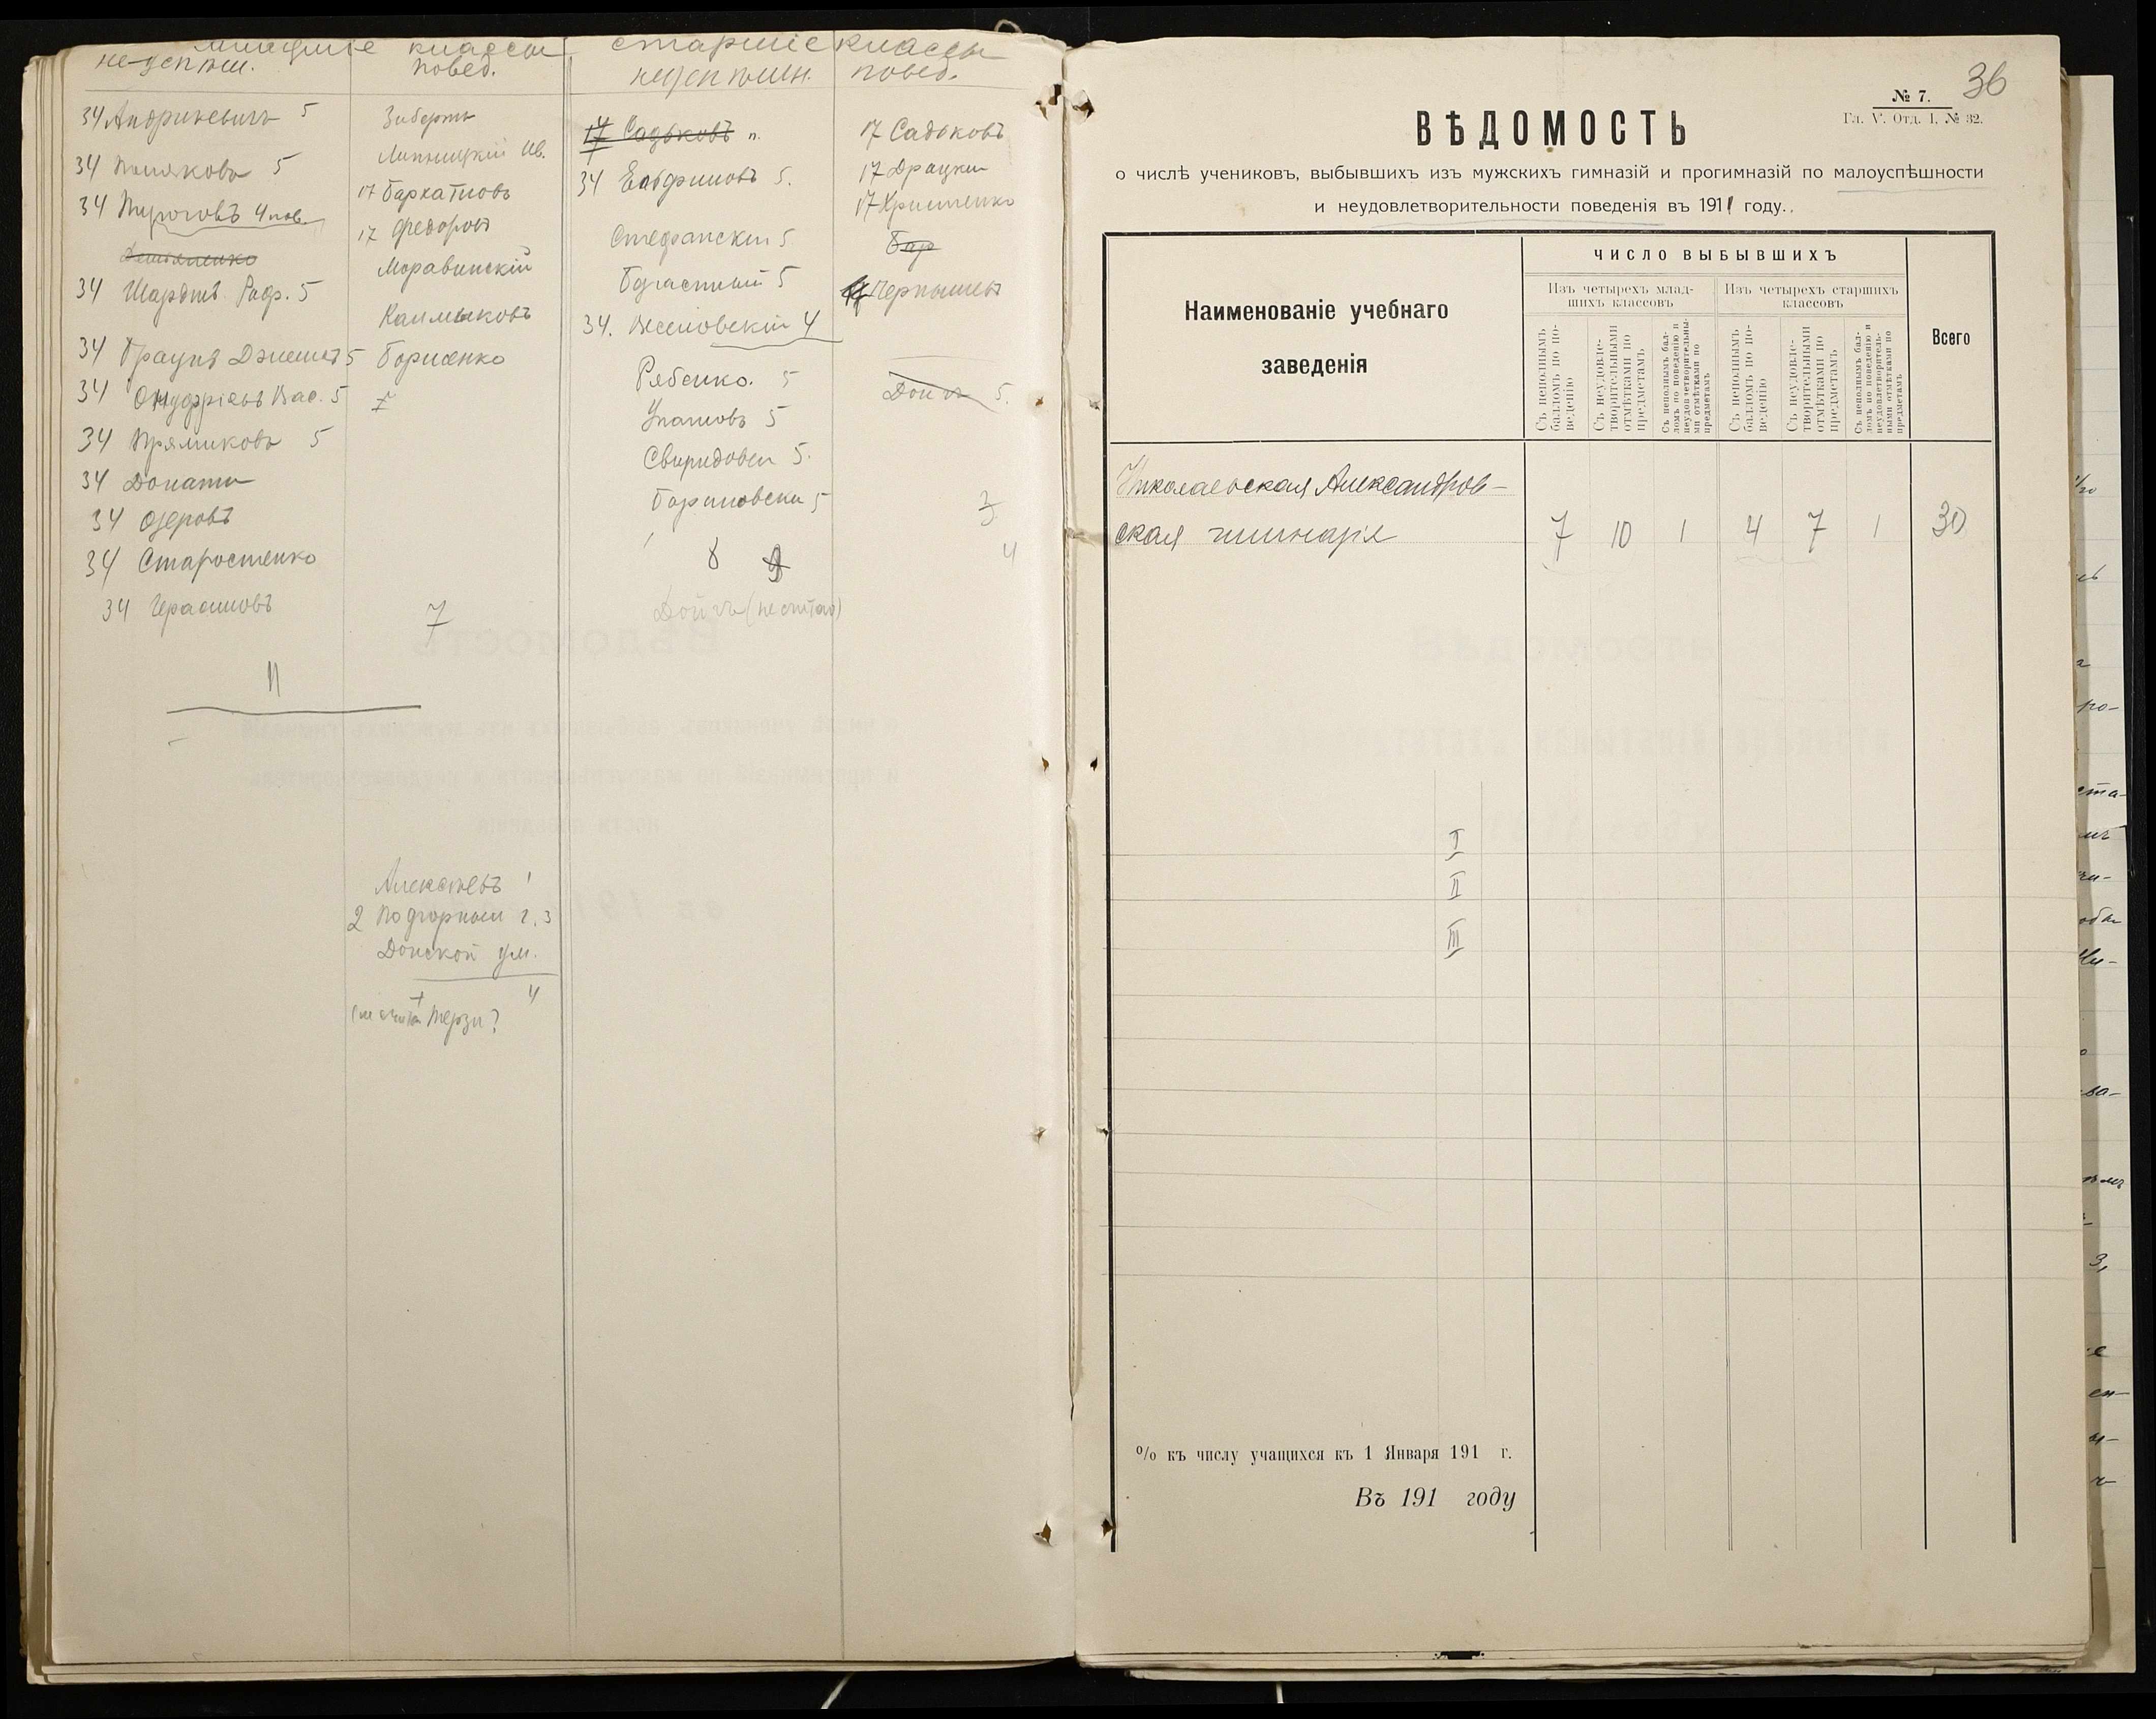 младшіе классы
неуспѣш.
повед.
34 Андрикевичъ 5
34 Поляковъ 5
34 Пироговъ 4 пов.
34 Шардтъ Раф. 5
34 Браунъ Джемсъ 5
34 Онуфріевъ Вас. 5
34 Прямиковъ 5
34 Донати
34 Озеровъ
34 Старостенко
34 Герасимовъ
11
Зибертъ
Липницкій Ив.
17 Бархатновъ
17 Федоровъ
Моравинскій
Калмыковъ
Борисенко
7
7
Алексѣевъ 1
2 Подгорный 2.3
Донской ум.
4
Терзи?
старшіе классы
неуспѣшн.
повед.
17 Садьковъ п.
34 Евфримовъ 5.
Стефанскій 5
Безчастный 5
34. Веселовскій 4
Рябенко. 5
Упатовъ 5
Свиридовъ 5.
Бариновскій 5
8 9
Дойчъ (не считаю)
17 Садьковъ
17 Драцкій
17 Христенко
Бар
17 Чернышевъ
Дойчъ 5.
3
4
36
№ 7.
Гл. V. Отд. I, № 32.
ВѢДОМОСТЬ
о числѣ учениковъ, выбывшихъ изъ мужскихъ гимназій и прогимназій по малоуспѣшности
и неудовлетворительности поведенія въ 1911 году.
Наименованіе учебнаго
заведенія
ЧИСЛО ВЫБЫВШИХЪ
Изъ четырехъ млад-
шихъ классовъ
Изъ четырехъ старшихъ
классовъ
Всего
Съ неполнымъ
балломъ по по-
веденію
Съ неудовле-
творительными
отмѣтками по
предметамъ
Съ неполнымъ бал-
ломъ по поведенію и
неудовлетворительны-
ми отмѣтками по
предметамъ
Съ неполнымъ
балломъ по по-
веденію
Съ неудовле-
творительными
отмѣтками по
предметамъ
Съ неполнымъ бал-
ломъ по поведенію и
неудовлетворитель-
ными отмѣтками по
предметамъ
Николаевская Александров-
ская гимназія 7 10 1 4 7 1 30
I
II
III
% къ числу учащихся къ 1 Января 191 г.
Въ 191 году